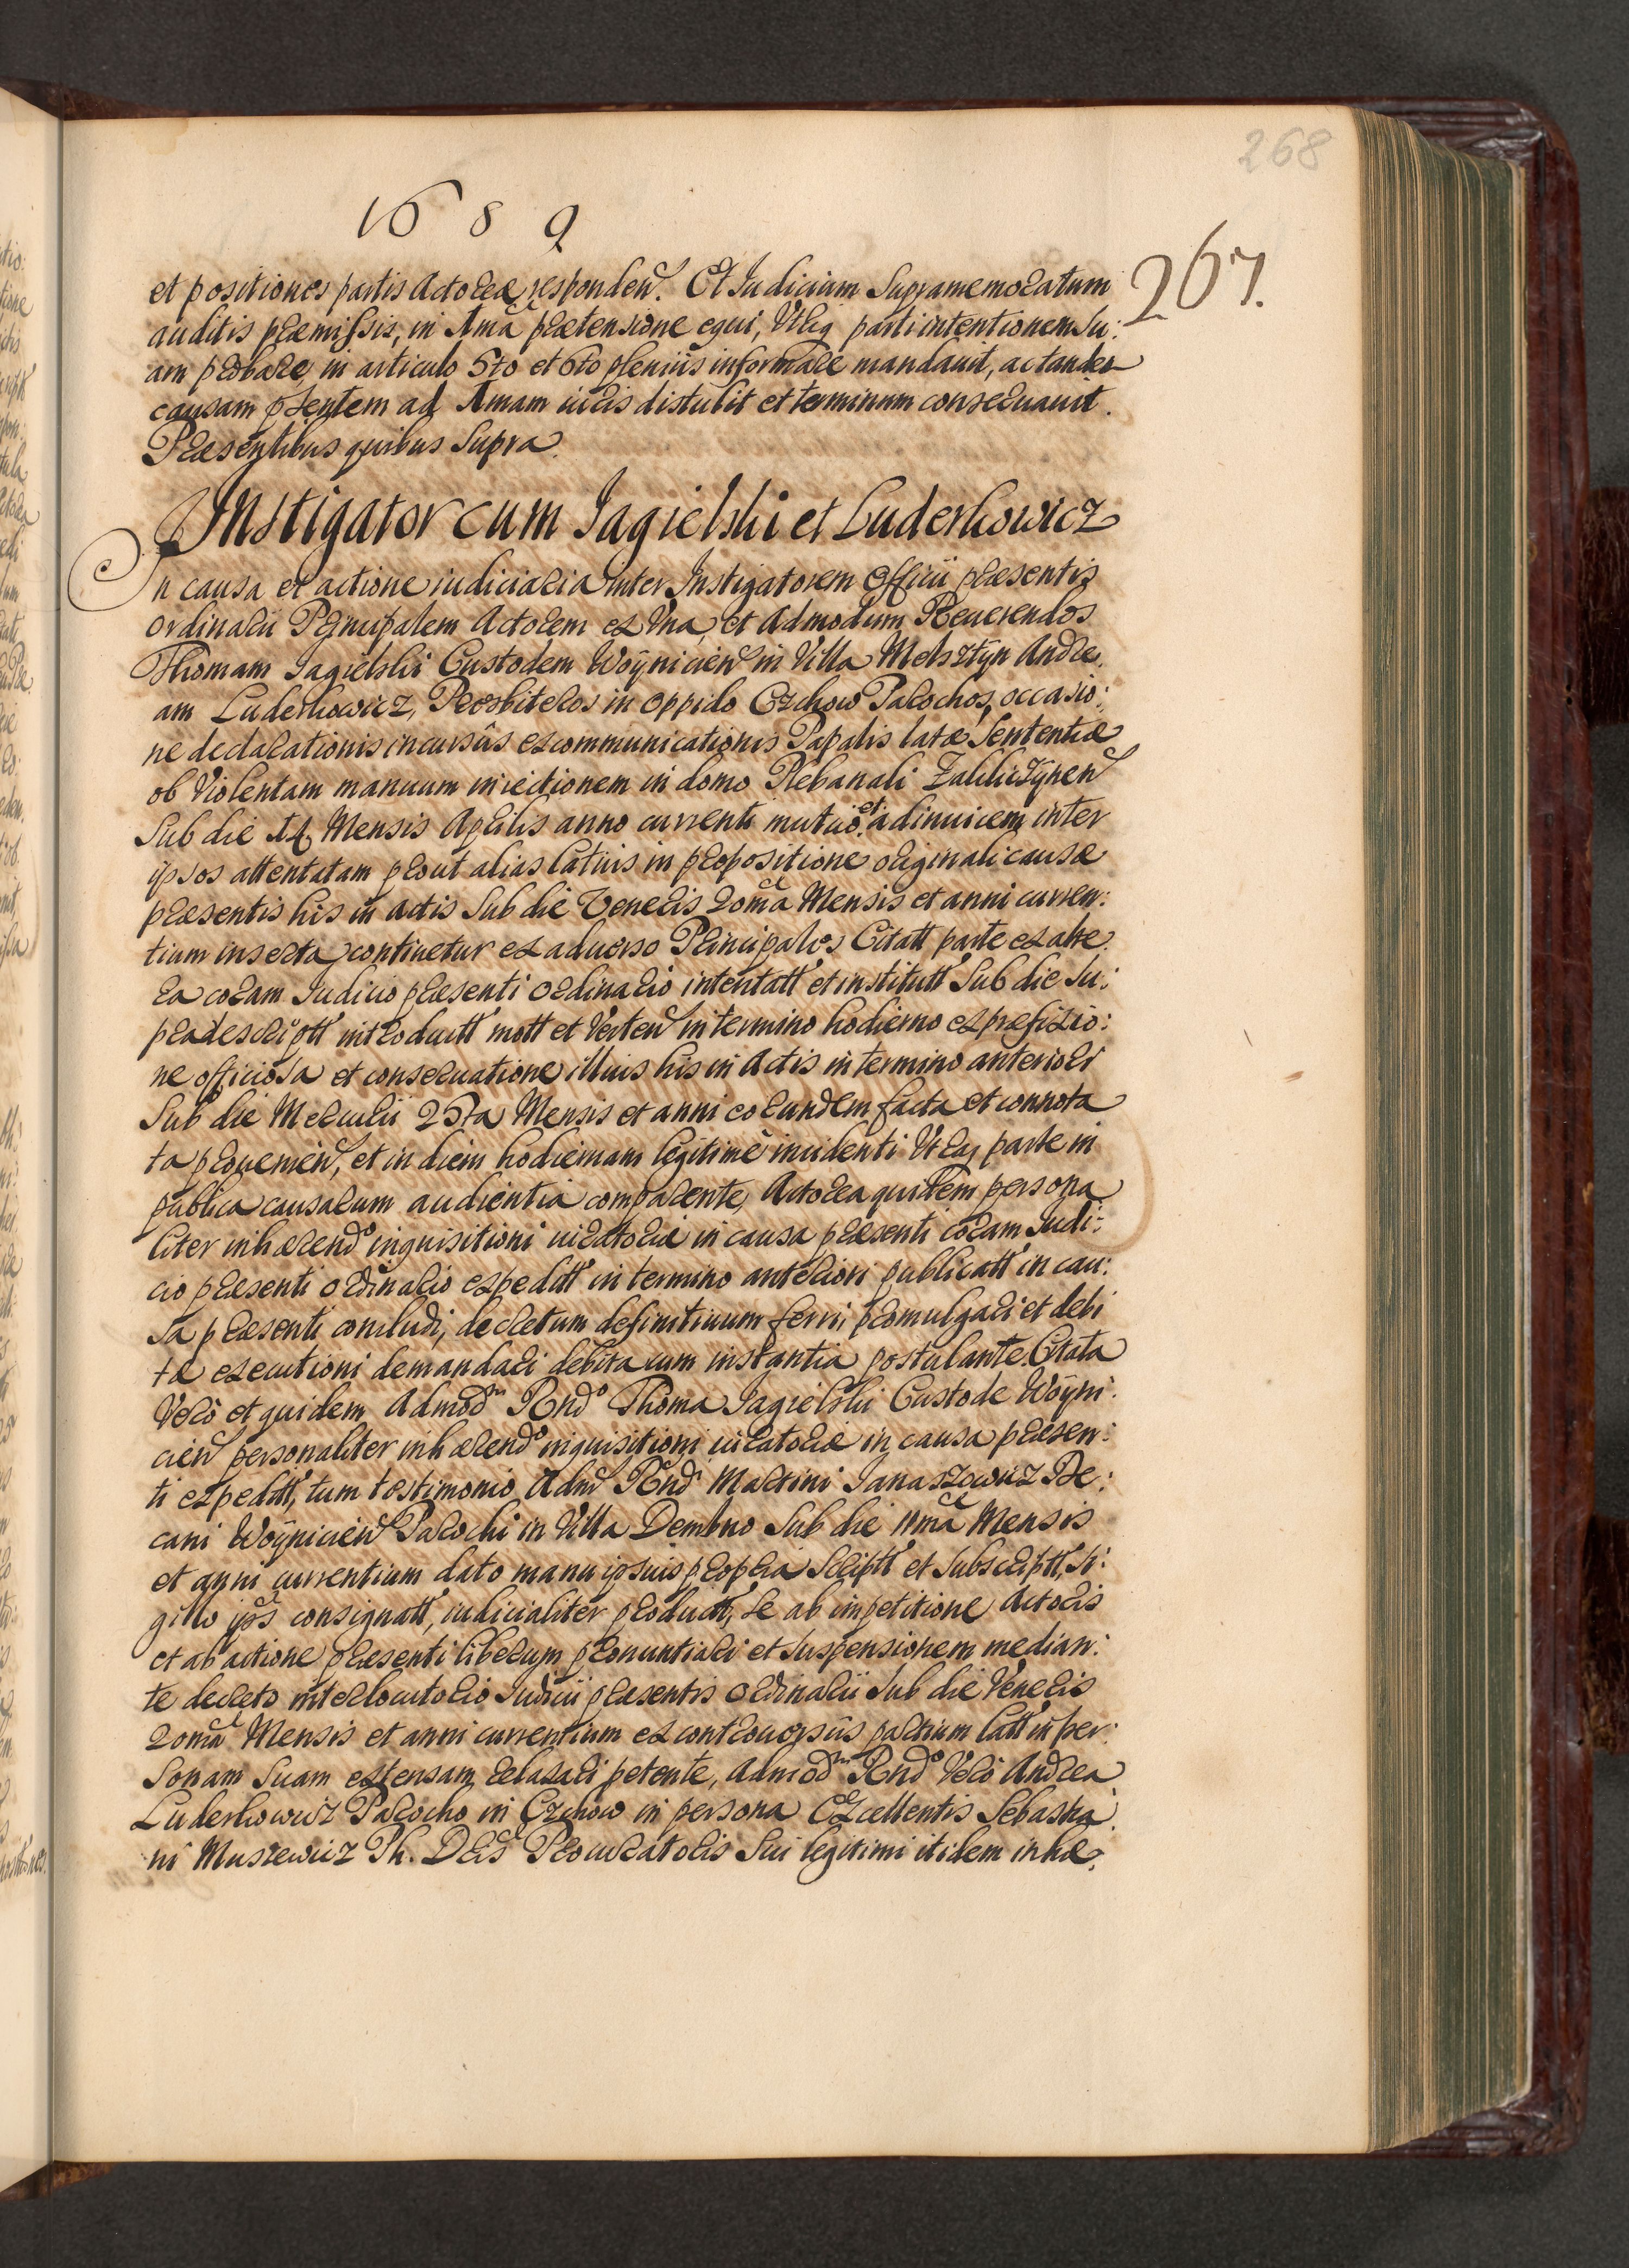 268
1689
267.
et positiones partis Actoreæ responden. Et Iudicium Supramemoratum
auditis præmissis, in Amā prætensione equi, Vtriq parti intentionem Su:
am probare, in articulo 5to et 6to pleniùs informare mandauit, ac tandem
causam psentem ad Amam iuris distulit et terminum conseruauit.
Præsentibus quibus Supra.
Instigator cum Iagielski et Luderkowicz
In causa et actione iudiciaria inter Instigatorem Officii præsentis
Ordinarii Principalem Actorem ex Vna, et Admodum Reuerendos
Thomam Iagielski Custodem Woÿnicien in Villa Melsztÿn Andre,
am Luderkowicz, Præsbiteros in Oppido Czchow Parochos, occasio:
ne declarationis incursûs excommunicationis Papalis latæ Sententiæ
ob Violentam manuum iniectionem in domo Plebanali Zakliczÿnen
Sub die 14 Mensis Aprilis anno currenti mutuò et adinuicem inter
ipsos attentatam prout alias latiùs in propositione originali causæ
præsentis his in actis Sub die Veneris 2omâ Mensis et anni curren:
tium inserta, continetur ex aduerso Principales Citatt parte ex alte,
ra coram Iudicio præsenti Ordinario intentatt et institutt Sub die Su:
pradescriptt introductt mott et Verten in termino hodierno ex præfixio:
ne officiosa et conseruatione illius his in Actis in termino anteriori
Sub die Mercurii 25ta Mensis et anni eorundem facta et connota
ta prouenien, et in diem hodiernam legitimè incidenti Vtraq parte in
publica causarum audientia comparente, Actorea quidem persona
liter inhærendo inquisitioni iuratoriæ in causa præsenti coram Iudi:
cio præsenti Ordinario expeditt in termino anteriori publicatt in cau:
sa præsenti concludi, decretum definitiuum ferri, promulgari et debi
ta executioni demandari debita cum instantia postulante. Citata
Verò et quidem Admodm Rndo Thoma Iagielski Custode Woÿni:
cien personaliter inhærendo inquisitioni iuratoriæ in causa præsen:
ti expeditt, tum testimonio Adm Rndi Martini Ianaszowicz De:
cani Woÿnicien Parochi in Villa Dembno Sub die 11mâ Mensis
et anni currentium dato manu ipsius propria Scriptt et Subscriptt, Si:
gillo ips consignatt, iudicialiter productt, Se ab impetitione Actoris
et ab actione præsenti liberum pronuntiari et Suspensionem median:
te decreto interlocutorio Iudicii præsentis Ordinarii Sub die Veneris
2omâ Mensis et anni currentium ex controuersiis partium latt in per:
sonam Suam extensam relaxari petente, Admodm Rndo Verò Andrea
Luderkowicz Parocho in Czchow in persona Excellentis Sebastia,
ni Muszewicz Ph. Dris Procuratoris Sui legitimi itidem inhæ,